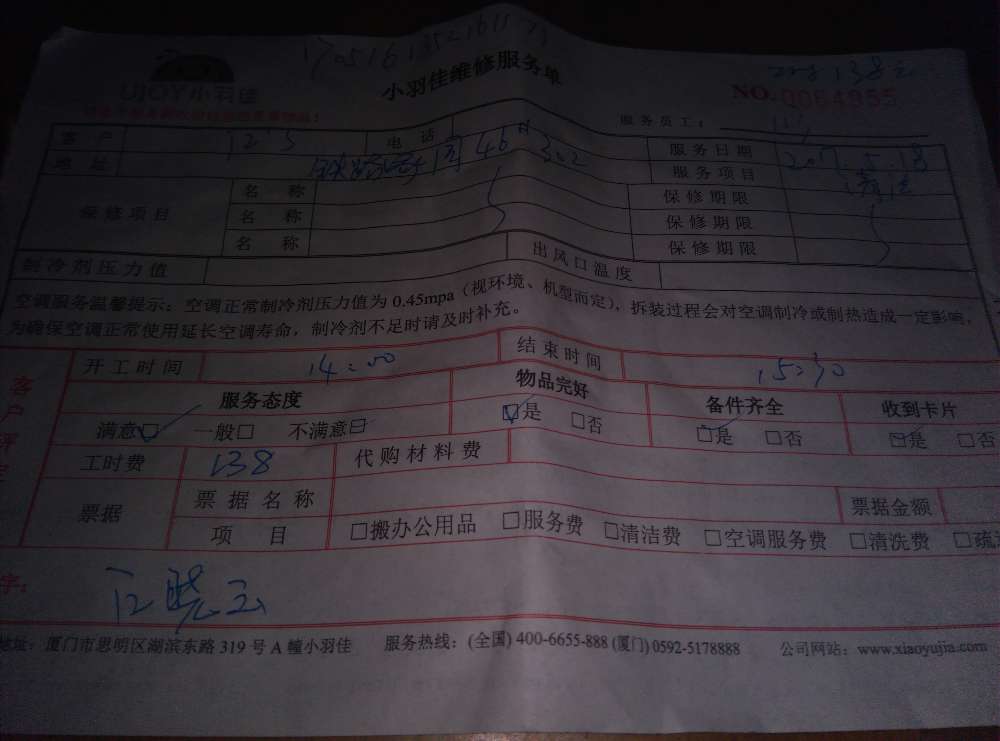 小羽佳维修服务单
UJOY小羽佳
NO.0064955
服务员工：
客户 电话 服务日期 2017.5.18
地址 46 302 服务项目 清洗
保修项目 名称 保修期限
名称 保修期限
名称 保修期限
制冷剂压力值 出风口温度
空调服务温馨提示：空调正常制冷剂压力值为 0.45mpa（视环境、机型而定），拆装过程会对空调制冷或制热造成一定影响，
为确保空调正常使用延长空调寿命，制冷剂不足时请及时补充。
客户评定
开工时间 14:00 结束时间 15:30
服务态度 物品完好 备件齐全 收到卡片
满意□ 一般□ 不满意□ □是 □否 □是 □否 □是 □否
工时费 138 代购材料费
票据 票据名称 票据金额
项目 □搬办公用品 □服务费 □清洁费 □空调服务费 □清洗费 □疏
字：
地址：厦门市思明区湖滨东路 319 号 A 幢小羽佳 服务热线：(全国) 400-6655-888 (厦门) 0592-5178888 公司网站：www.xiaoyujia.com